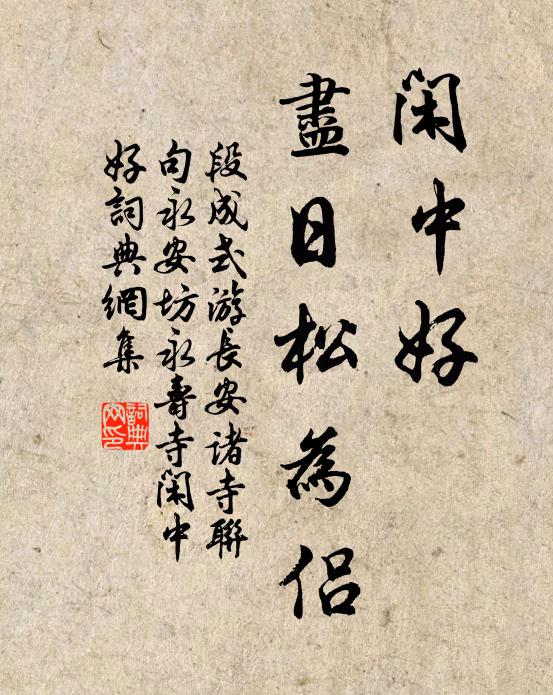 閑中好
盡日松為侶
段成式游長安諸寺聯
句永安坊永壽寺閑中
好詞典網集
詞典
网印